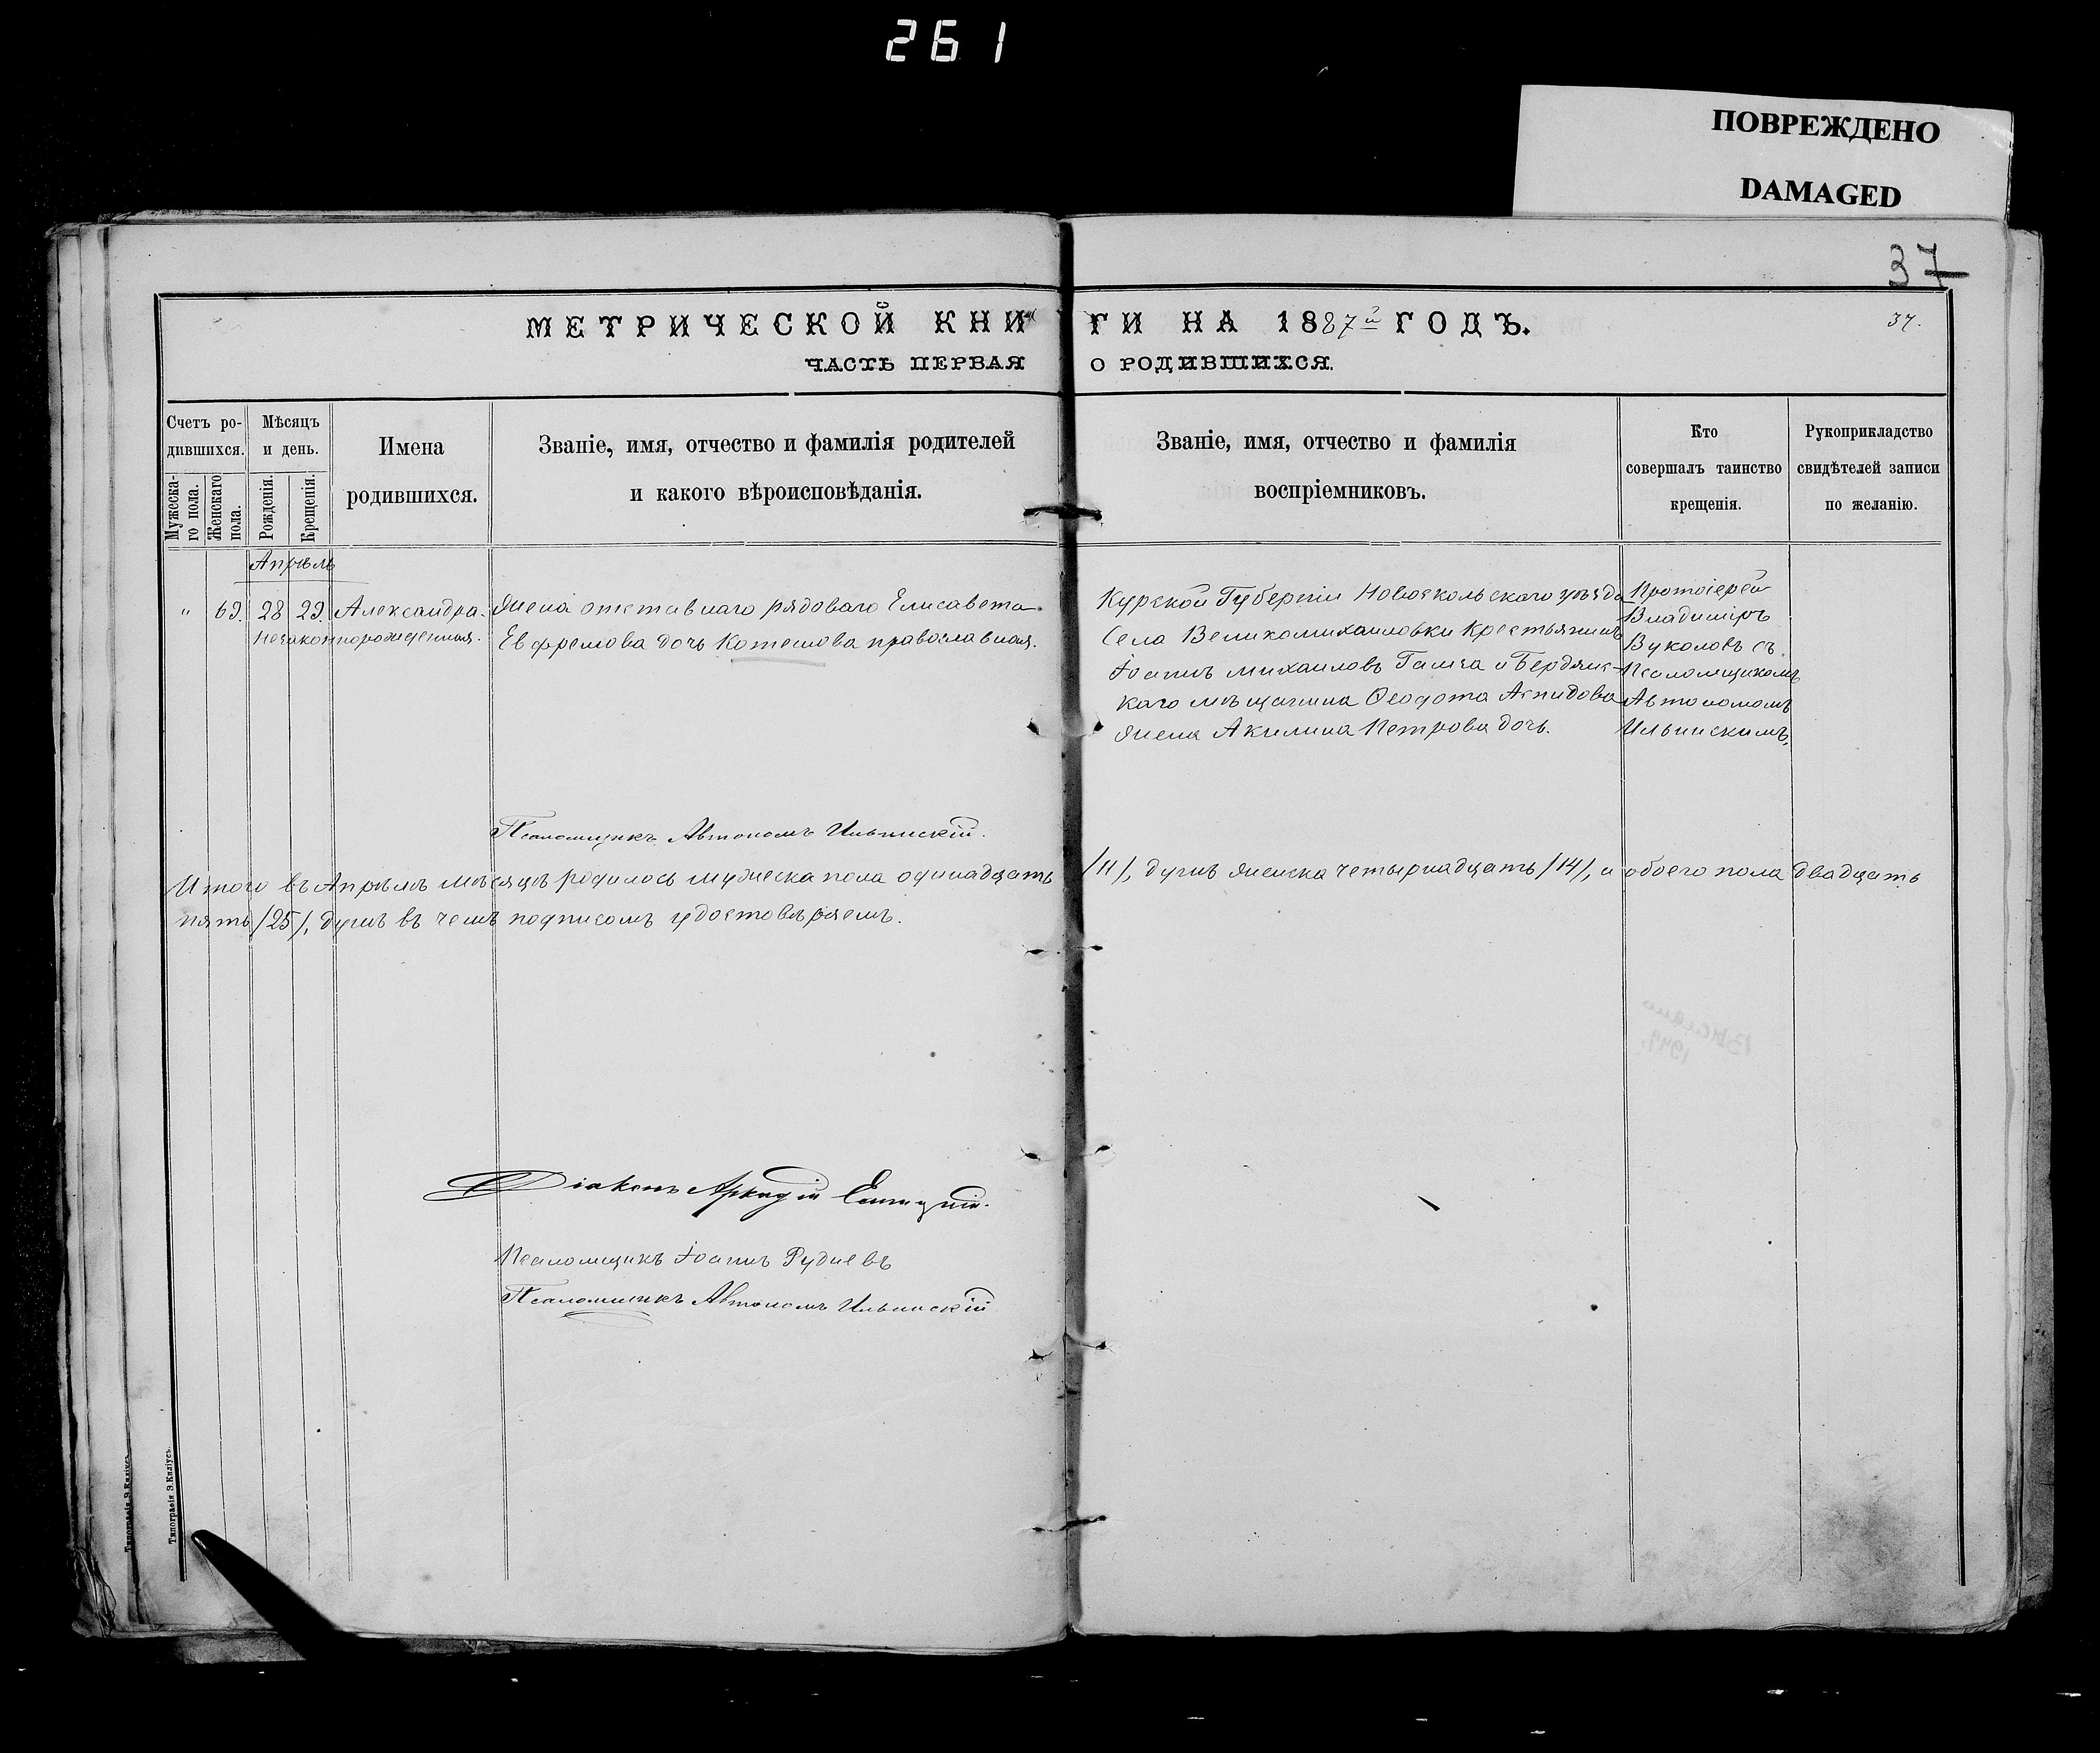 261
ПОВРЕЖДЕНО
DAMAGED
37
МЕТРИЧЕСКОЙ КНИГИ НА 1887й ГОДЪ.
37.
ЧАСТЬ ПЕРВАЯ О РОДИВШИХСЯ.
Счетъ ро-
дившихся.
Мужеска-
го пола.
Женскаго
пола.
Мѣсяцъ
и день.
Рожденія.
Крещенія.
Имена
родившихся.
Званіе, имя, отчество и фамилія родителей
и какого вѣроисповѣданія.
Званіе, имя, отчество и фамилія
воспріемниковъ.
Кто
совершалъ таинство
крещенія.
Рукоприкладство
свидѣтелей записи
по желанію.
Апрѣль
" 69. 28 29. Александра.
незаконнорожденная.
Жена отставнаго рядоваго Елисавета
Ефремова дочь Котешова православная.
Курской Губерніи Новоскольскаго уѣзда
Села Великомихаиловки Крестьянинъ
Іоаннъ Михаиловъ и Бердянс-
каго мѣщанина Ѳеодота Аспидова
жена Акилина Петрова дочь.
Протоіерей
Владиміръ
Вуколовъ съ
Псаломщикомъ
Автономомъ
Ильинскимъ.
Псаломщикъ Автономъ Ильинскій.
Итого въ Апрѣлѣ мѣсяцѣ родилось мужеска пола одинадцать /11/, душъ женска четырнадцать /14/, и обоего пола двадцать
пять /25/, душъ въ чемъ подписомъ удостовѣряемъ.
Діаконъ Аркадій
Псаломщикъ Іоаннъ Рудневъ
Псаломщикъ Автономъ Ильинскій
Типографія Э. Килiусъ.
Типографія Э. Килiусъ.